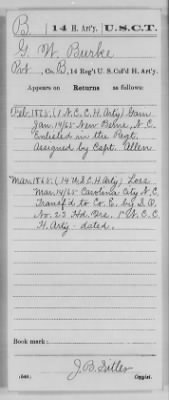 B | 14 H. Art'y. | U.S.C.T.
G. W. Burke
Pvt, Co. B, 14 Reg't U. S. Col'd H. Art'y.
Appears on
Returns as follows:
Feb. 1865. (1 N.C.C.H. Arty) Gain
Jan. 14/65 New Berne, N.C.
Enlisted in the Regt.
Assigned by Capt. Allen
Mar. 1865. (14 U.S.C.H. Arty) Loss
Mar. 14/65 Carolina City N.C.
Transf'd to Co. E. by S.O.
No. 23 Hd. Qrs. 1" N.C.C.
H. Arty - dated.
Book mark:
(546) J. B.
Copyist.